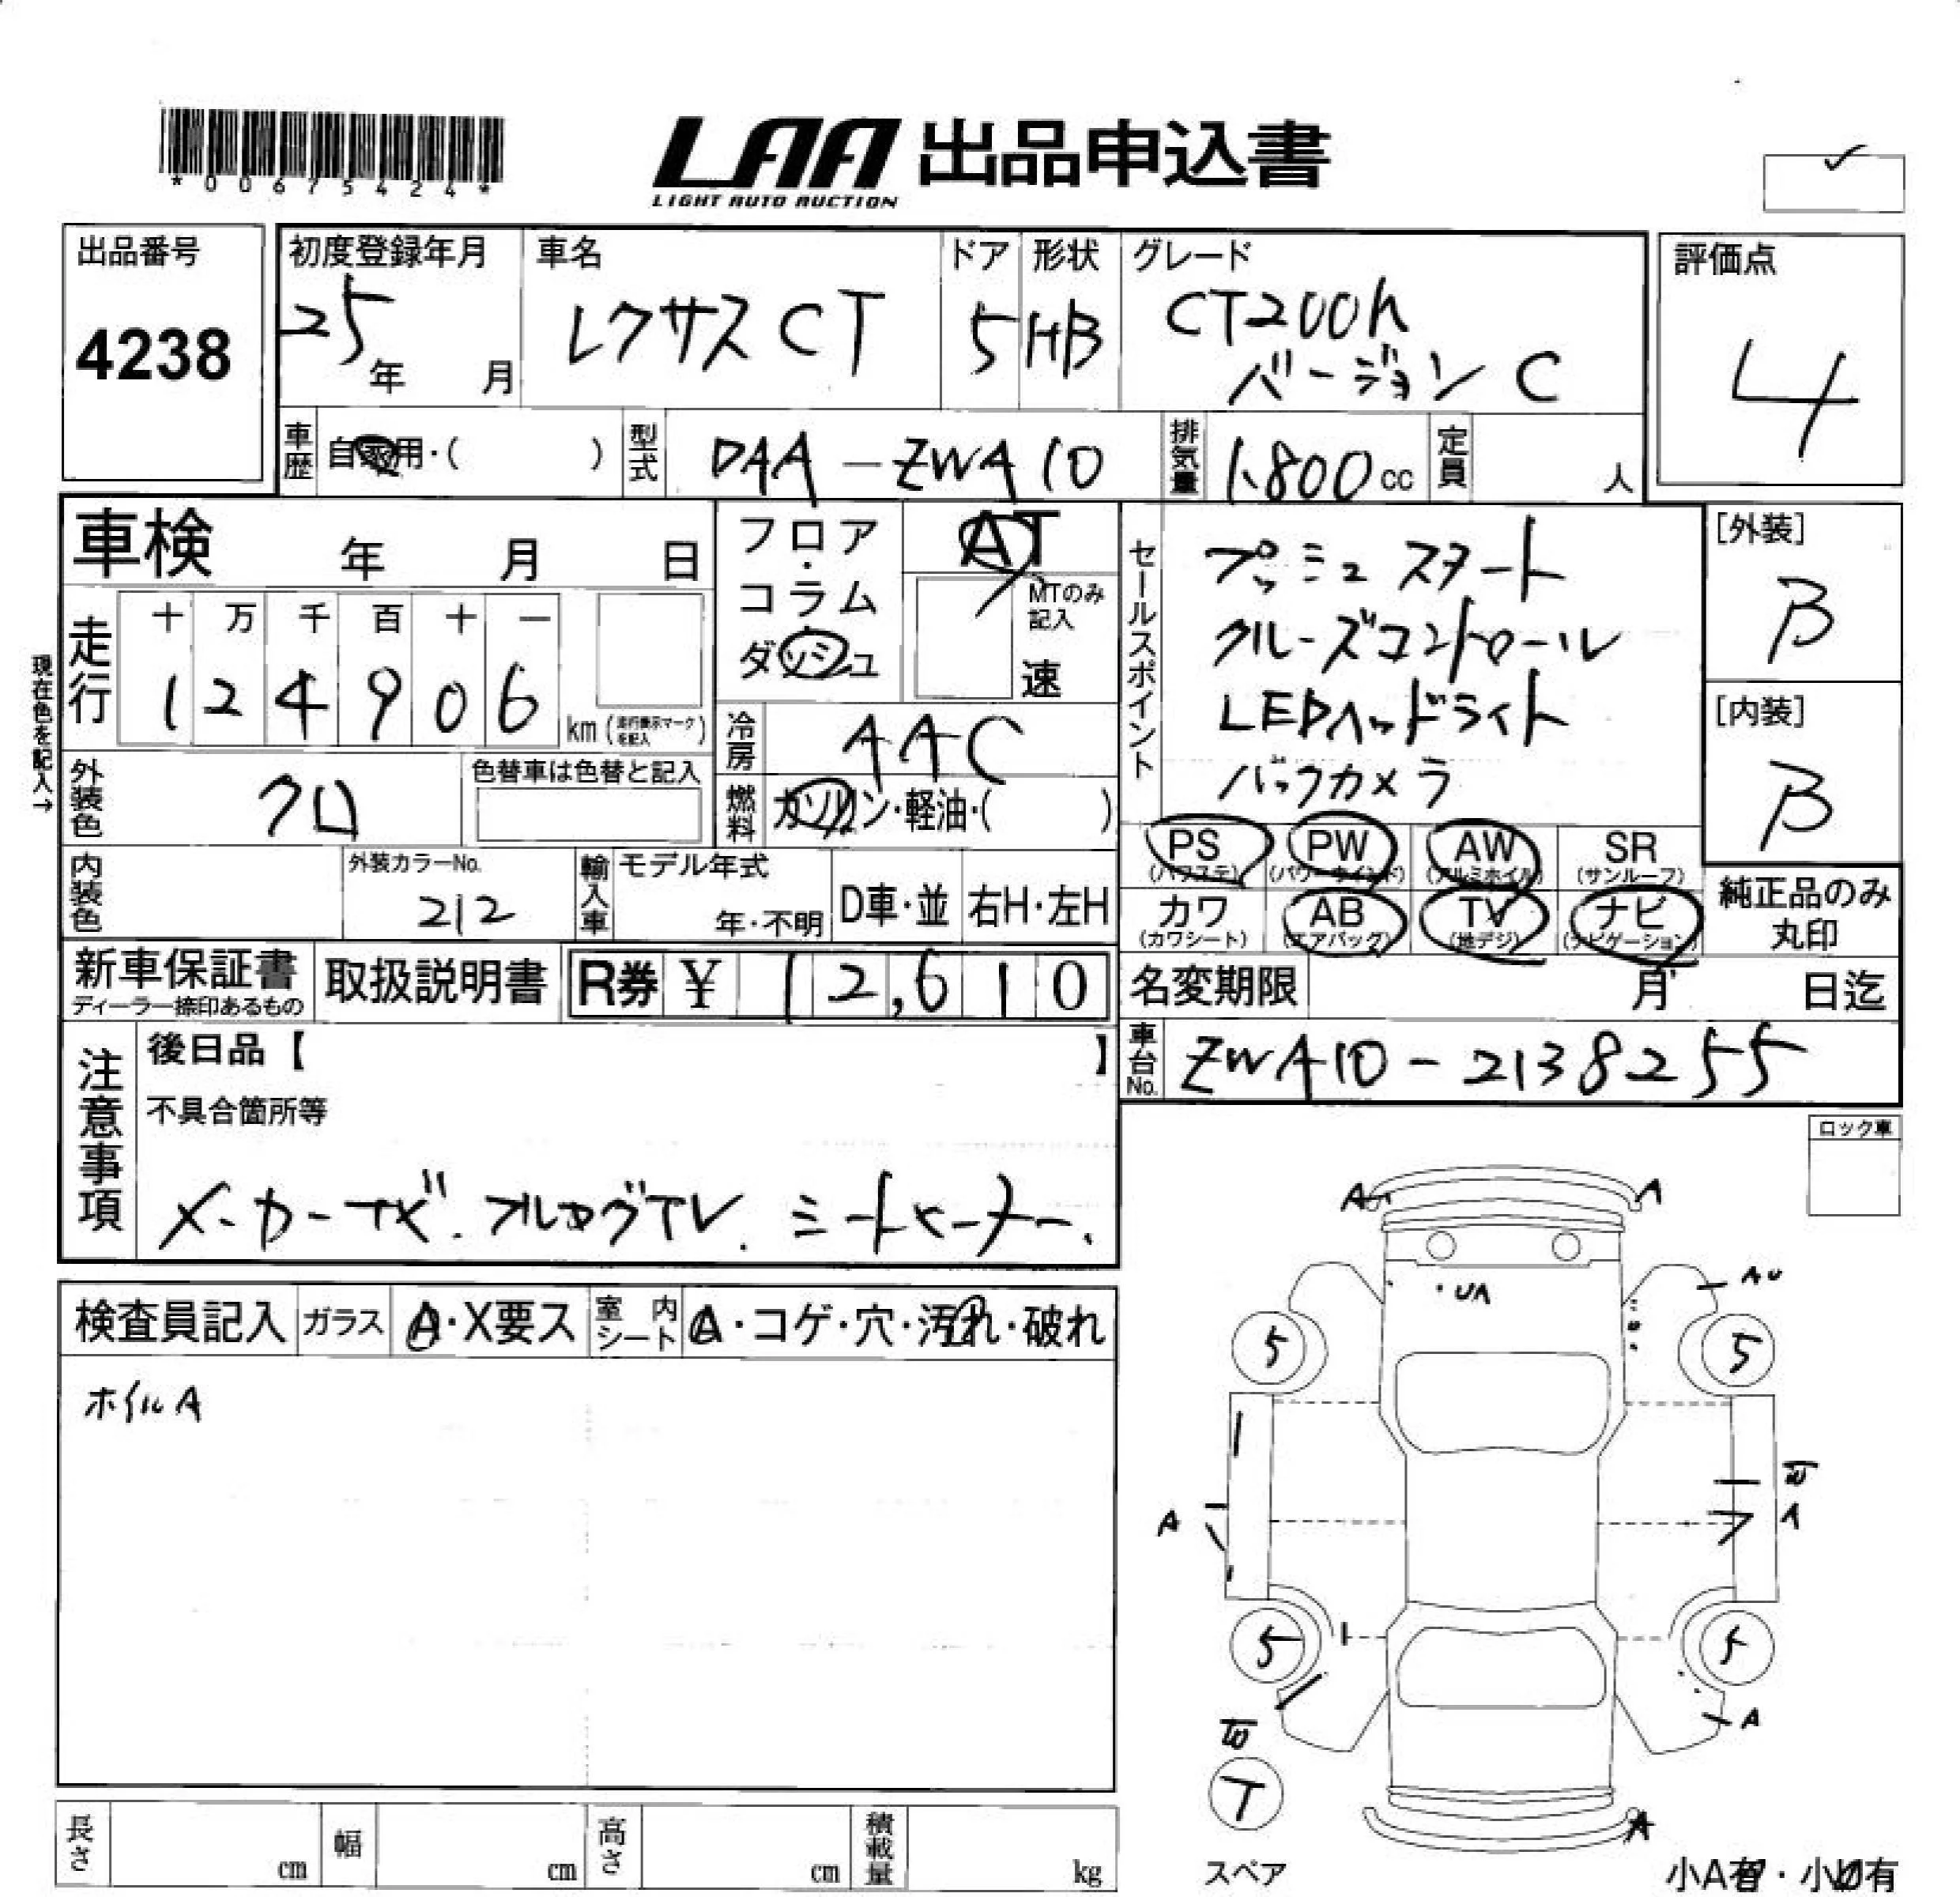 *00675424*
LAA 出品申込書
LIGHT AUTO AUCTION
出品番号
4238
初度登録年月
25年 月
車名
レクサス CT
ドア
5
形状
HB
グレード
CT200h
バージョン C
評価点
4
車歴
自家用・( )
型式
DAA-ZWA10
排気量
1,800 cc
定員
人
車検 年 月 日
フロア・コラム・ダッシュ
AT
MTのみ記入
速
セールスポイント
プッシュスタート
クルーズコントロール
LEDヘッドライト
バックカメラ
[外装]
B
[内装]
B
現在色を記入→
走行
十 万 千 百 十 一
1 2 4 9 0 6
km (走行表示マークを記入)
冷房
AAC
外装色
クロ
色替車は色替と記入
燃料
ガソリン・軽油・( )
PS (パワステ)
PW (パワーウインド)
AW (アルミホイル)
SR (サンルーフ)
カワ (カワシート)
AB (エアバッグ)
TV (地デジ)
ナビ (ナビゲーション)
純正品のみ丸印
内装色
外装カラーNo.
212
輸入車
モデル年式
年・不明
D車・並
右H・左H
新車保証書
ディーラー捺印あるもの
取扱説明書
R券 ¥ 12,610
名変期限 月 日迄
車台No.
ZWA10-2138255
注意事項
後日品【 】
不具合箇所等
メーカーナビ. フルセグTV. シートヒーター.
ロック車
検査員記入
ガラス
A・X要ス
室内シート
A・コゲ・穴・汚れ・破れ
ホイルA
A
A
・UA
AU
5
5
A
A
5
5
A
T
スペア
A
小A有・小U有
長さ cm
幅 cm
高さ cm
積載量 kg